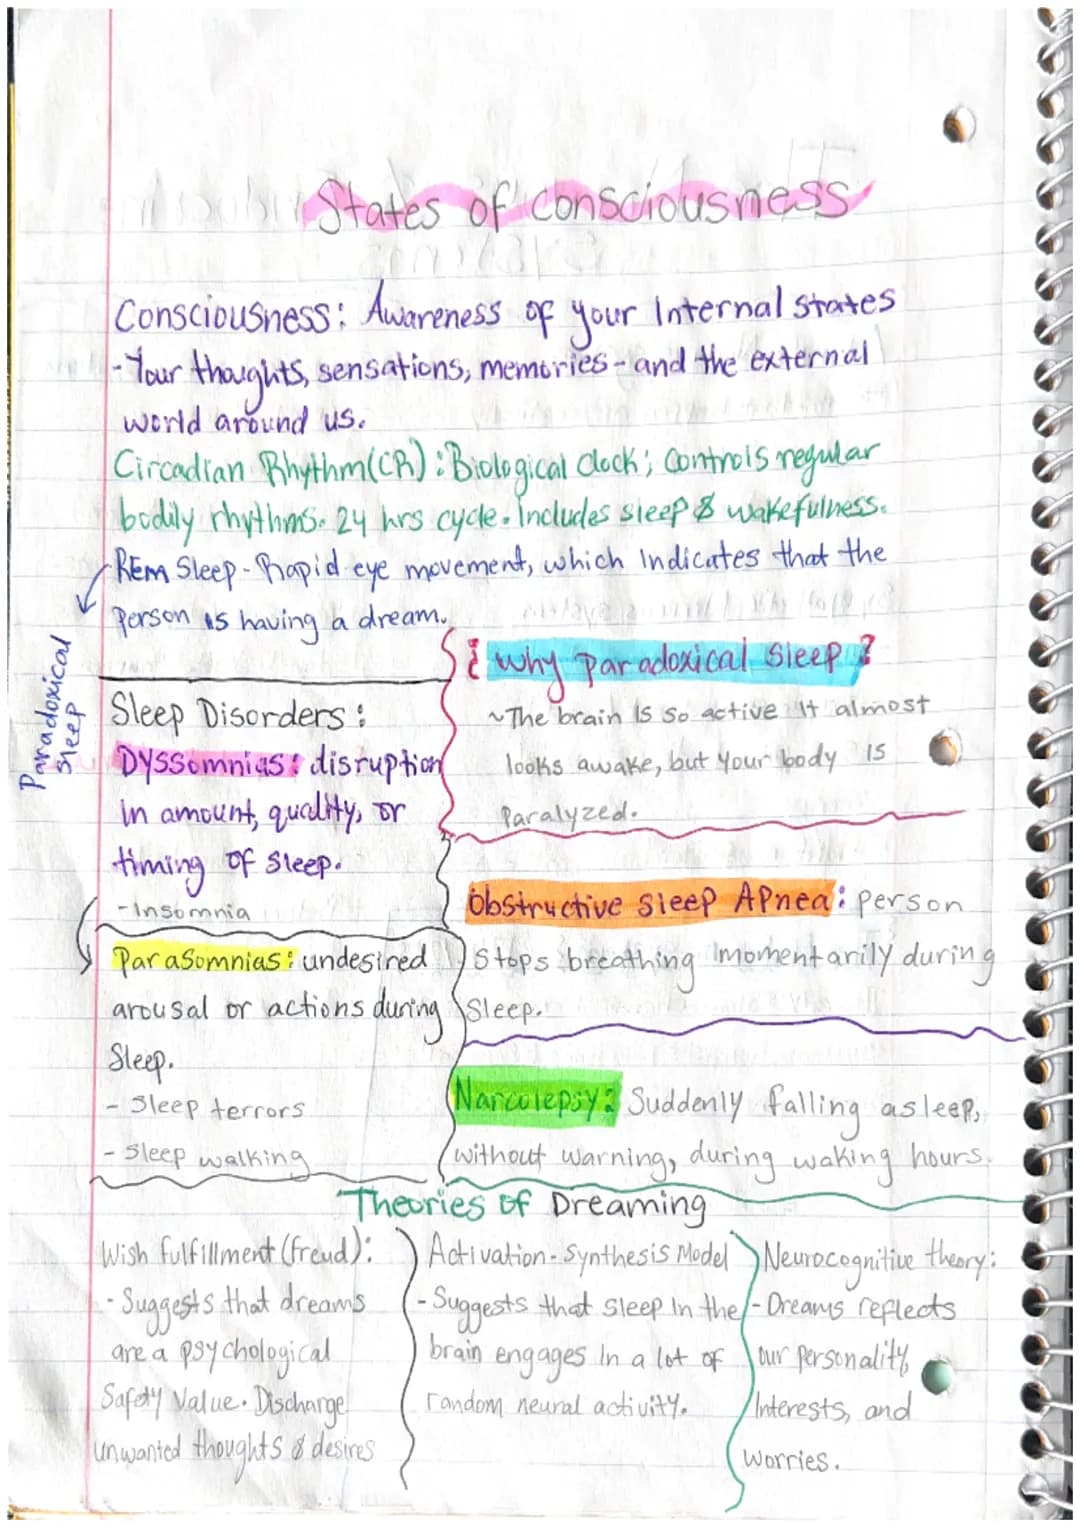 States of consciousness
Consciousness: Awareness of your Internal states
- Your thoughts, sensations, memories - and the external
world around us.
Circadian Rhythm (CR): Biological Clock; Controls regular
bodily rhythms. 24 hrs cycle. Includes sleep & wakefulness.
REM Sleep - Rapid eye movement, which Indicates that the
Person is having a dream.
Paradoxical
Sleep
¿ why paradoxical sleep?
~The brain Is so active It almost
looks awake, but your body is
Paralyzed.
Sleep Disorders:
Dyssomnias: disruption
In amount, quality, or
timing of sleep.
- Insomnia
Parasomnias: undesired
arousal or actions during
Sleep.
- Sleep terrors
- Sleep walking
Obstructive Sleep Apnea: person
Stops breathing momentarily during
Sleep.
Narcolepsy: Suddenly falling asleep,
without warning, during waking hours.
Theories of Dreaming
Wish fulfillment (freud):
- Suggests that dreams
are a psychological
Safety Value. Discharge
unwanted thoughts & desires
Activation - Synthesis Model
- Suggests that sleep In the
brain engages In a lot of
random neural activity.
Neurocognitive theory:
- Dreams reflects
our personality,
Interests, and
worries.